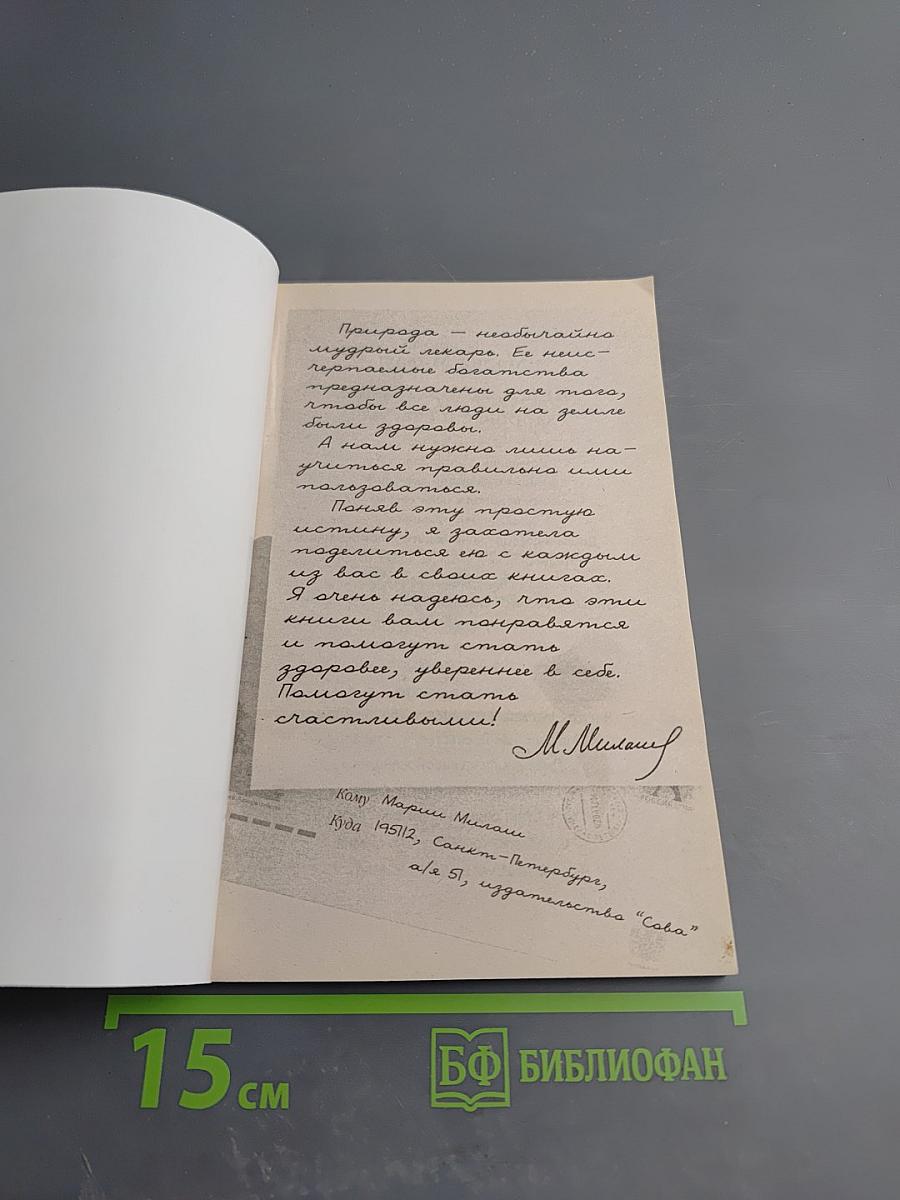 Природа — необычайно
мудрый лекарь. Ее неис-
черпаемые богатства
предназначены для того,
чтобы все люди на земле
были здоровы.
А нам нужно лишь на-
учиться правильно ими
пользоваться.
Поняв эту простую
истину, я захотела
поделиться ею с каждым
из вас в своих книгах.
Я очень надеюсь, что эти
книги вам понравятся
и помогут стать
здоровее, увереннее в себе.
Помогут стать
счастливыми!
М Милаш
Кому Марии Милаш
Куда 195112, Санкт-Петербург,
а/я 51, издательство "Сова"
15 см
БФ БИБЛИОФАН